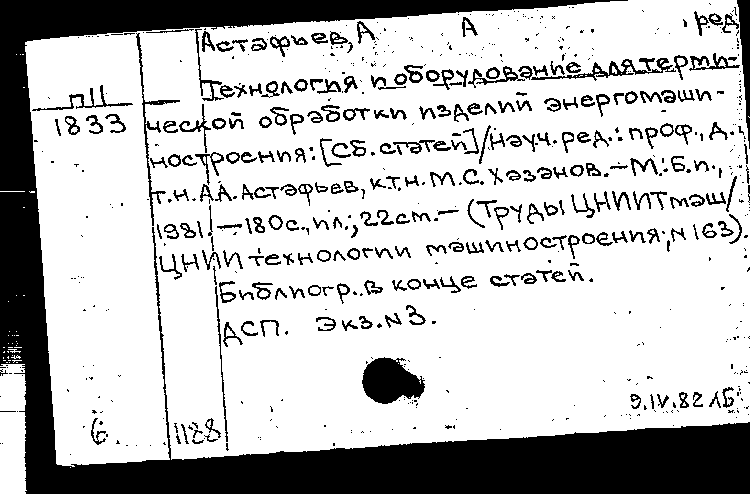 Астафьев, А А , ред
п11 — Технология и оборудование для терми-
1833 ческой обработки изделий энергомаши-
ностроения: [Сб. статей]/Науч. ред.: проф., д.
т.н. А.А. Астафьев, к.т.н. М.С. Хазанов. — М.: Б.и.,
1981. — 180с., ил.; 22см. — (Труды ЦНИИТмаш/
ЦНИИ технологии машиностроения; N 163).
Библиогр. в конце статей.
ДСП. Экз. N3.
9.IV.82 ЛБ
6. 1188